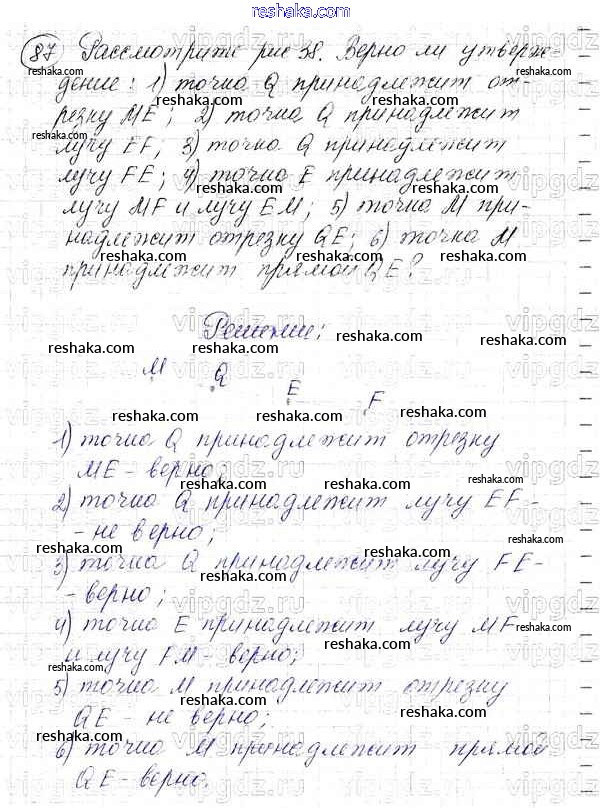 reshaka.com
87 Рассмотрите рис 38. Верно ли утверж-
дение: 1) точка Q принадлежит от-
резку ME; 2) точка Q принадлежит
лучу EF; 3) точка Q принадлежит
лучу FE; 4) точка E принадлежит
лучу MF и лучу EM; 5) точка M при-
надлежит отрезку QE; 6) точка M
принадлежит прямой QE?
Решение:
M Q
E
F
1) точка Q принадлежит отрезку
ME - верно;
2) точка Q принадлежит лучу EF -
- не верно;
3) точка Q принадлежит лучу FE -
- верно;
4) точка E принадлежит лучу MF
и лучу FM - верно;
5) точка M принадлежит отрезку
QE - не верно;
6) точка M принадлежит прямой
QE - верно.